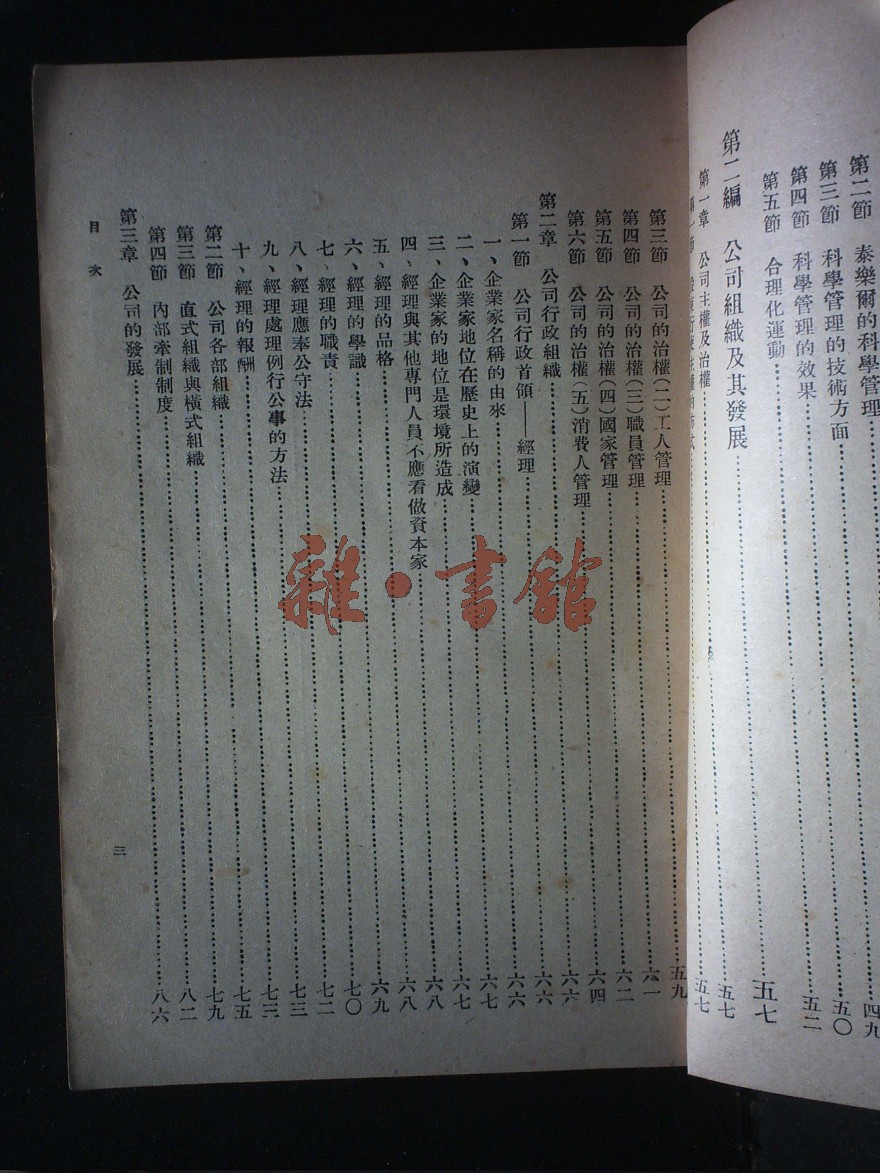 第二節 泰樂爾的科學管理
第三節 科學管理的技術方面……四九
第四節 科學管理的效果……五〇
第五節 合理化運動……五二
第二編 公司組織及其發展……五七
第一章 公司主權及治權……五七
五七
第三節 公司的治權(二)工人管理……五九
第四節 公司的治權(三)職員管理……六一
第五節 公司的治權(四)國家管理……六二
第六節 公司的治權(五)消費人管理……六四
第二章 公司行政組織……六六
第一節 公司行政首領——經理……六六
一、企業家名稱的由來……六六
二、企業家地位在歷史上的演變……六七
三、企業家的地位是環境所造成……六七
四、經理與其他專門人員不應看做資本家……六八
五、經理的品格……六八
六、經理的學識……六九
七、經理的職責……七〇
八、經理應奉公守法……七二
九、經理處理例行公事的方法……七三
十、經理的報酬……七三
第二節 公司各部組織……七五
第三節 直式組織與橫式組織……七九
第四節 內部牽制制度……八二
第三章 公司的發展……八六
目次 三
雜·書館